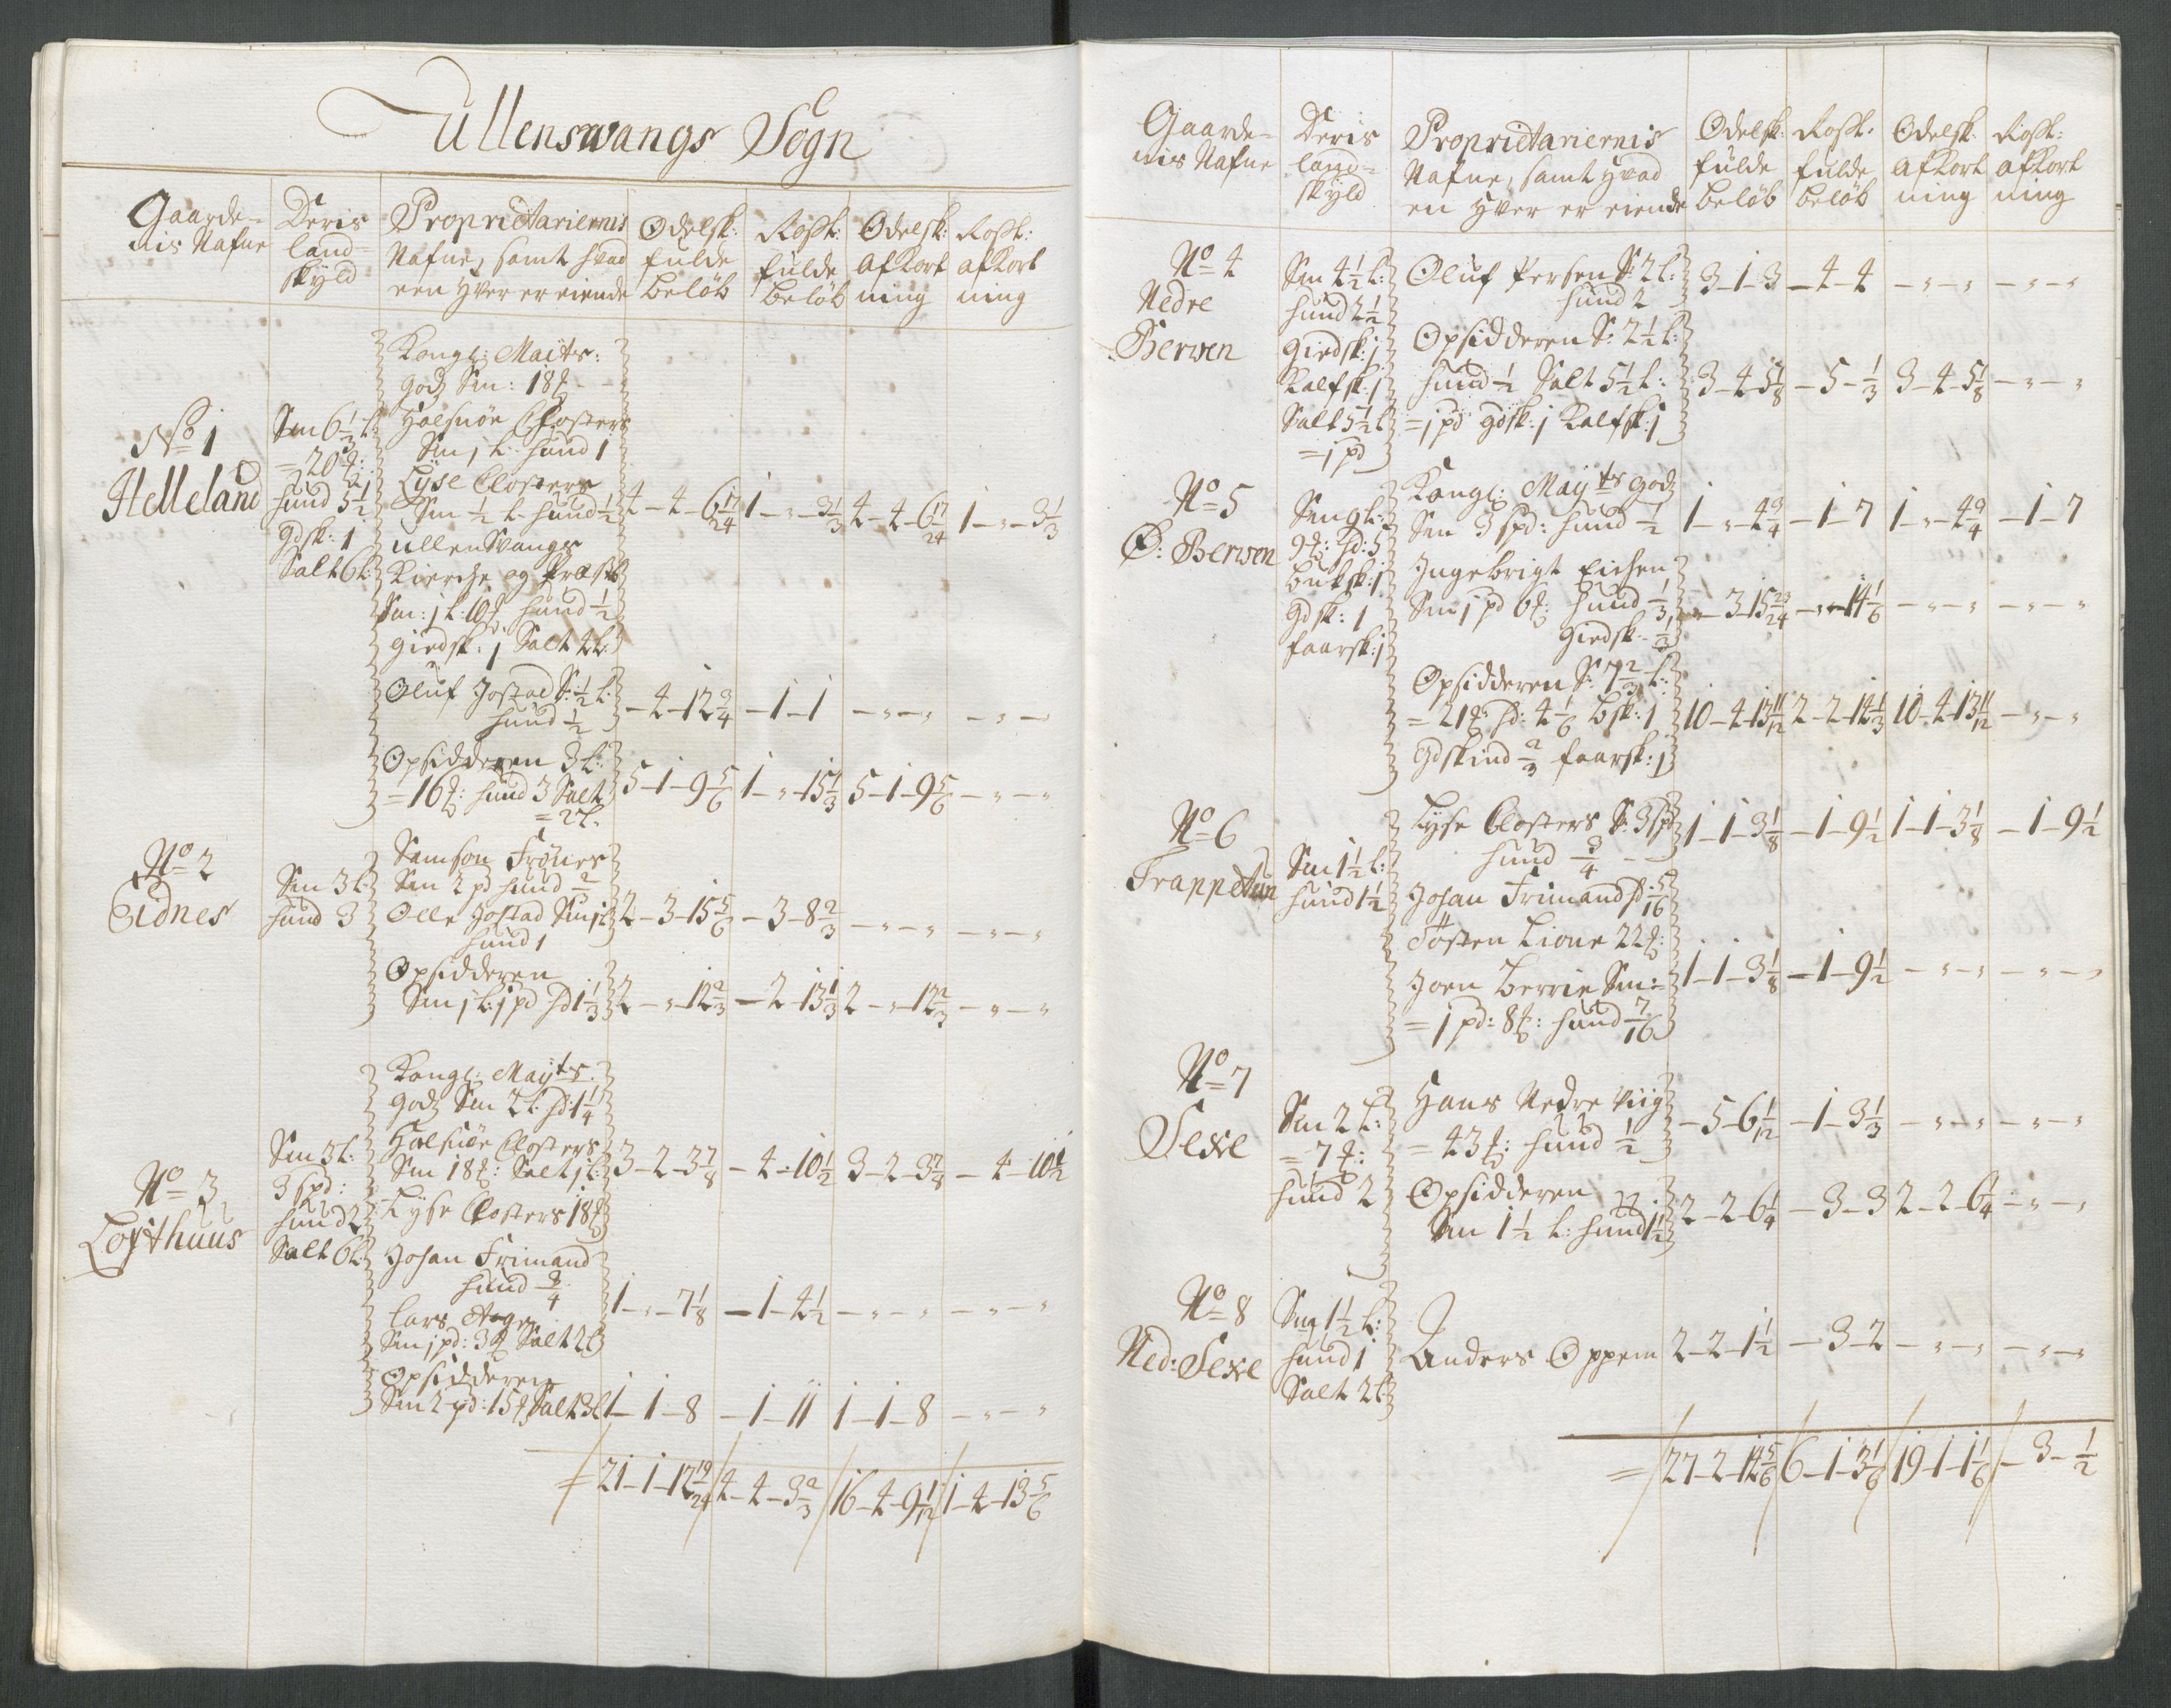 Ullenswangs Sogn
Gaarde-
nis Nafne
Deris
land-
skyld
Proprietariernis
Nafne, samt hvad
een hver er eiende
Odelsk:
fulde
beløb
Rosst:
fulde
beløb
Odelsk:
afkort
ning
Rosst:
afkort
ning
No 1
Helleland
Sm 6 1/3 l:
= 20 ℔:
hund 5 1/2
gdsk: 1
Salt 6 l:
Kongl: Maits:
godz Sm: 18 ℔ -
Halsnøe Closters
Sm 1 l: hund 1
Lÿse Closters
Sm 1/2 l. hund 1/2
ullensvangs
Kierche og Præste
Sm: 1 l: 10 ℔ hund 1/2
giedsk: 1 Salt 4 l:
4-4-6 17/24
1-"-3 1/3
4-4-6 17/24
1-"-3 1/3
Oluf Jostad S: 1/2 l:
hund 1/2
-4-12 3/4
-1-1
-"-"
-"-"
Opsidderen 3 l:
= 16 ℔: hund 3 Salt
= 2 l.
5-1-9 5/6
1-"-15 1/3
5-1-9 5/6
-"-"
No 2
Eidnes
Sm 3 l:
hund 3
Samson Frönes
Sm 2 pd hund 2/3
Olle Jostad Sm 1 l
hund 1
2-3-15 5/6
-3-8 2/3
-"-"
-"-"
Opsidderen
Sm 1 l: 1 pd hd 1 1/3
2-"-12 2/3
-2-13 1/3
2-"-12 2/3
-"-"
No 3
Lofthuus
Sm 3 l:
3 spd:
hund 2
Salt 6 l:
Kongl: Maÿts:
godz Sm 2 l: hd: 1 1/4
Halsnöe Closters
Sm 18 ℔: Salt 1 l:
Lÿse Closters 18 ℔
3-2-3 7/8
-4-10 1/2
3-2-3 7/8
-4-10 1/2
Johan Frimand
hund 3/4
Lars Aage
Sm 1 pd: 3 ℔ Salt 2 l
1-"-7 1/8
-1-4 1/2
-"-"
-"-"
Opsidderen
Sm 2 pd: 15 ℔ Salt 3 l
1-1-8
-1-11
1-1-8
-"-"
= 21-1-12 19/24
4-4-3 2/3
16-4-9 1/12
1-4-13 5/6
Gaarde-
nis Nafne
Deris
land-
skyld
Proprietariernis
Nafne, samt hvad
en hver er eiende
Odelsk:
fulde
beløb
Rosst:
fulde
beløb
Odelsk:
afkort
ning
Rosst:
afkort
ning
No 4
Nedre
Berven
Sm 4 1/2 l:
hund 2 1/2
giedsk: 1
Kalfsk: 1
Salt 5 1/2 l
= 1 pd
Oluf Persen S: 2 l:
hund 2
3-1-3
-4-4
-"-"
-"-"
Opsidderen S: 2 1/2 l:
hund 1/2 Salt 5 1/2 l:
= 1 pd gdsk: 1 Kalfsk: 1
3-4-5 1/8
-5-1/3
3-4-5 1/8
-"-"
No 5
Ø: Berven
Sm 9 l:
9 ℔: hd: 5
buksk: 1
gdsk: 1
faarsk: 1
Kongl: Maÿts godz
Sm 3 spd: hund 1/2
1-"-4 3/4
-1-7
1-"-4 3/4
-1-7
Ingebrigt Eichen
Sm 1 pd 6 ℔: hund 1/3
giedsk: 1/3
-3-15 23/24
-"-14 1/6
-"-"
-"-"
Opsidderen S: 7 2/3 l:
= 21 ℔: hd: 4 1/6 bsk: 1
gdskind 2/3 faarsk: 1
10-4-13 11/12
2-2-14 1/3
10-4-13 11/12
-"-"
No 6
Trappetun
Sm 1 1/2 l:
hund 1 1/2
Lÿse Closters S: 3 spd
hund 3/4
1-1-3 1/8
-1-9 1/2
1-1-3 1/8
-1-9 1/2
Johan Frimand hd: 5/16
Tösten Lione 22 ℔:
Joen Berrie Sm:
= 1 pd: 8 ℔: hund 7/16
1-1-3 1/8
-1-9 1/2
-"-"
-"-"
No 7
Sexe
Sm 2 l:
= 7 ℔:
hund 2
Hans Nedre Viig
= 43 ℔: hund 1/2
-5-6 1/12
-1-3 1/3
-"-"
-"-"
Opsidderen
Sm 1 1/2 l: hund 1 1/2
2-2-6 1/4
-3-3
2-2-6 1/4
-"-"
No 8
Ned: Sexe
Sm 1 1/2 l:
hund 1
Salt 2 l:
Anders Oppem
2-2-1 1/2
-3-2
-"-"
-"-"
= 27-2-14 5/6
6-1-3 1/6
19-1-1 1/6
-3-1/2